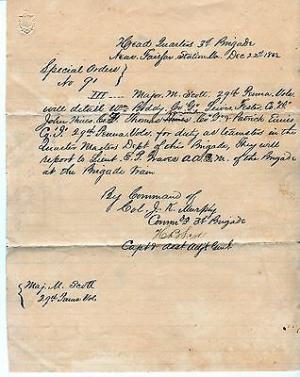 Head Quarters 3d Brigade
Near Fairfax Station Va. Dec 22d 1862
Special Orders }
No 9
III --- Major M. Scott 29th Penna. Vols.
will detail Wm Co G
John Co & Patrick
Co G 29th Penna Vols. for duty as teamsters in the
Quarter Masters Dept of this Brigade, they will
report to Lieut. A.Q.M. of this Brigade
at the Brigade train
By Command of
Col. J. K. Murphy
Comm'd 3d Brigade
Capt & Act Adjt Genl
{ Maj. M. Scott
29th Penna Vol.